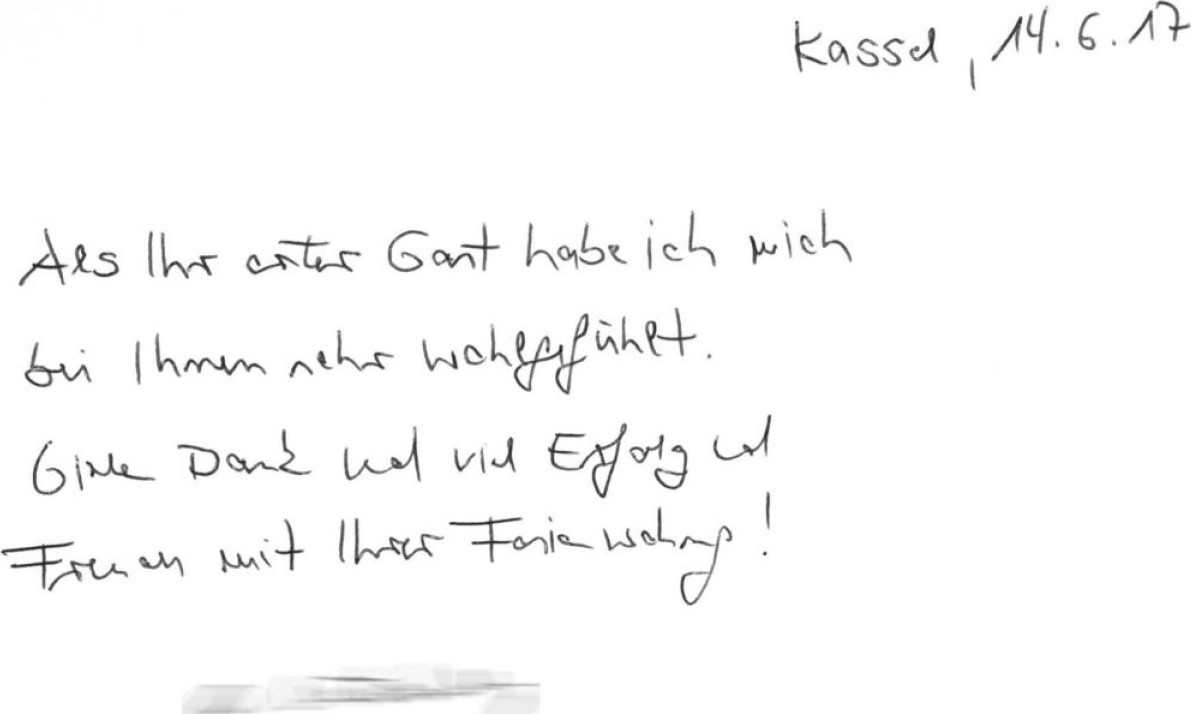 Kassel, 14.6.17
Als Ihr erster Gast habe ich mich
bei Ihnen sehr wohlgefühlt.
Dank und viel Erfolg und
Freude mit Ihrer Ferienwohnung!